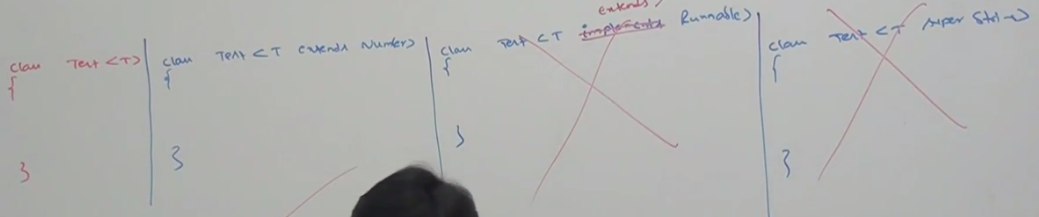 class Test <T>
{
}
class Test <T extends Number>
{
}
extends
class Test <T implements Runnable>
{
}
class Test <T super String>
{
}